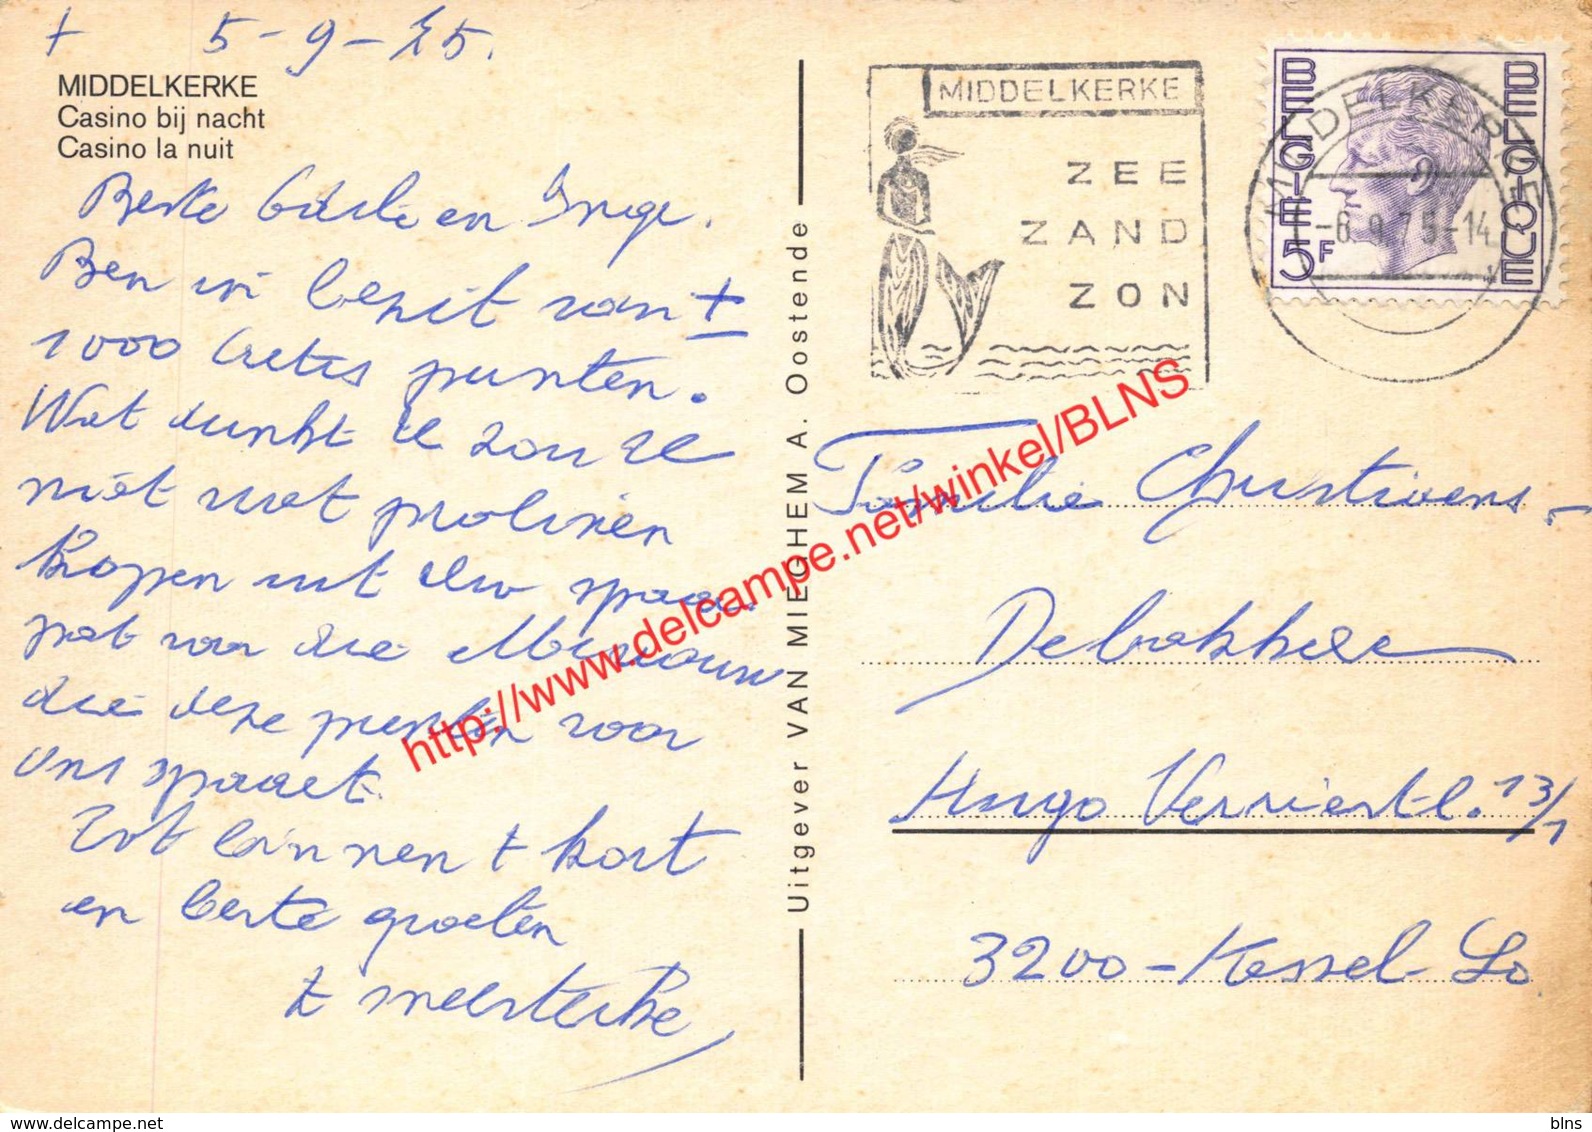 + 5-9-75.
MIDDELKERKE
Casino bij nacht
Casino la nuit
Beste en Inge.
Ben in bezit van ±
1000 artis punten.
Wat dunkt U zou U
niet wat pralinen
kopen uit Uw spaar
pot voor die Mevrouw
die deze punten voor
ons spaart.
Tot binnen + kort
en beste groeten
't meesterke
Uitgever VAN MIEGHEM A. Oostende
MIDDELKERKE
ZEE
ZAND
ZON
MIDDELKERKE
-6.9.75-14
BELGIE 5F
BELGIQUE
Familie Christiaens -
Debakkere
Hugo Verriestl. 13/1
3200 - Kessel-Lo
http://www.delcampe.net/winkel/BLNS
blns